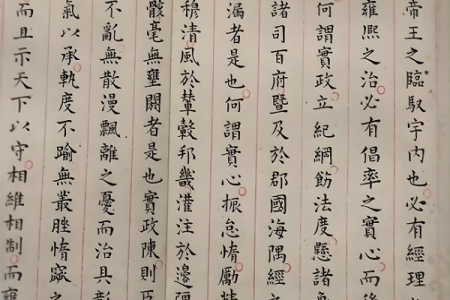 帝王之臨馭宇内也必有經理
雍熙之治必有倡率之實心而
何謂實政立紀綱飭法度懸諸
諸司百府暨及於郡國海隅經之
漏者是也何謂實心振怠惰勵精
穆清風於輦轂邦畿灌注於邊疆
骸毫無壅閼者是也實政陳則臣
不亂無散漫飄離之憂而治具彰
氣以承軌度不踰無叢脞惰窳之
而且示天下以守相維相制而雍